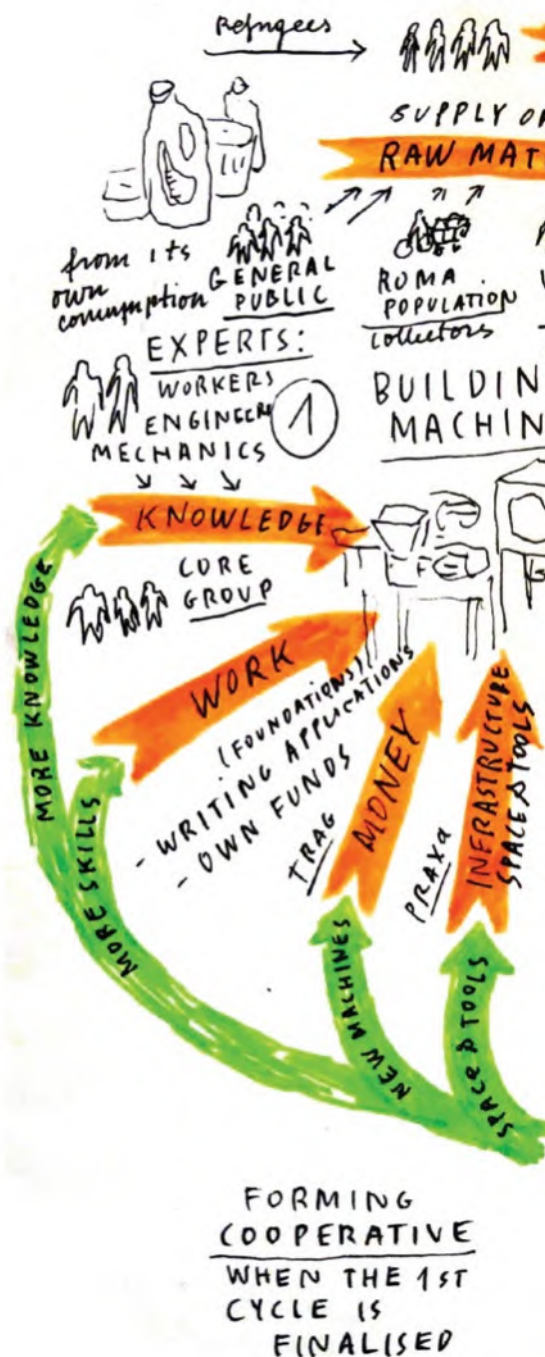 Refugees
SUPPLY OF
RAW MAT
from its
own
consumption
GENERAL
PUBLIC
ROMA
POPULATION
collectors
EXPERTS:
WORKERS
ENGINEERS
MECHANICS
1
BUILDIN
MACHIN
KNOWLEDGE
CORE
GROUP
WORK
(FOUNDATIONS)
- WRITING APPLICATIONS
- OWN FUNDS
TRAG
MONEY
PRAXA
INFRASTRUCTURE
SPACE & TOOLS
MORE KNOWLEDGE
MORE SKILLS
NEW MACHINES
SPACE & TOOLS
FORMING
COOPERATIVE
WHEN THE 1ST
CYCLE IS
FINALISED